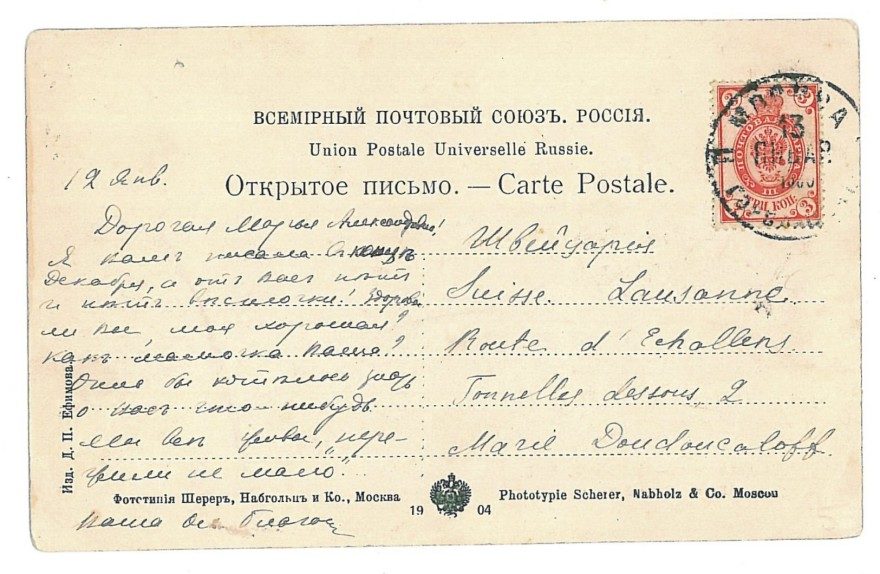 ВСЕМІРНЫЙ ПОЧТОВЫЙ СОЮЗЪ. РОССІЯ.
Union Postale Universelle Russie.
Открытое письмо. — Carte Postale.
12 Янв.
Дорогая Марья Александровна!
Я вамъ писала въ концѣ
Декабря, а отъ васъ нѣтъ
и нѣтъ вѣсточки! Здоровы
ли Вы, моя хорошая?
Какъ мамочка Ваша?
Очень бы хотѣлось знать
о васъ что-нибудь.
Мы всѣ живы, „пере-
жили не мало".
Ваша
Швейцарія
Suisse. Lausanne.
Route d'Echallens
Tonnelles dessous, 2
Marie Doudoucaloff
Изд. Д. П. Ефимова.
Фототипія Шереръ, Набгольцъ и Ко., Москва
19 04
Phototypie Scherer, Nabholz & Co. Moscou
МОСКВА
13
3
3
3